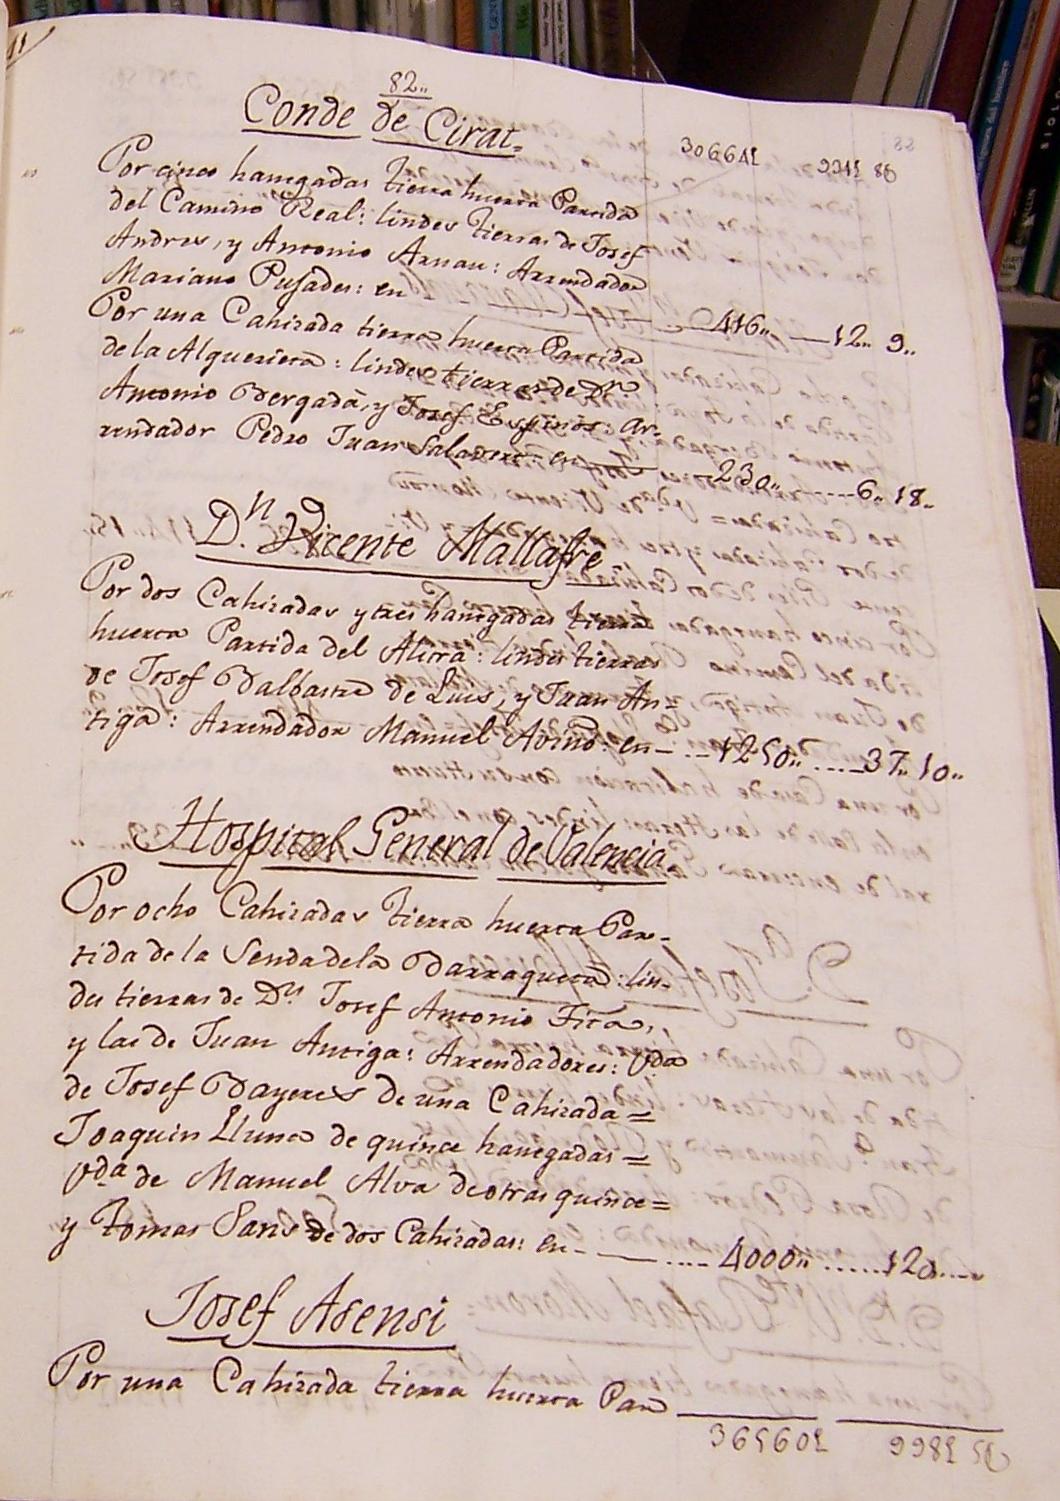 82..
Conde de Cirat=
30664£ 994£ 8d
Por cinco hanegadas tierra huerta Partida
del Camino Real: lindes tierras de Josef
Andres, y Antonio Arnau: Arrendador
Mariano Pusades: en 416.. 12.. 9..
Por una Cahizada tierra huerta Partida
de la Alquerieta: lindes tierras de Dn.
Antonio Bergadá, y Josef Espinós: Ar-
rendador Pedro Juan Salavert: en 230.. 6.. 18..
Dn. Vicente Mallafré
Por dos Cahizadas y tres hanegadas tierra
huerta Partida del Alitrá: lindes tierras
de Josef Balbastre de Luis, y Juan An=
tiga: Arrendador Manuel Aviñó: en 1250.. 37.. 10..
Hospital General de Valencia
Por ocho Cahizadas tierra huerta Par-
tida de la Senda dela Barraqueta: lin-
des tierras de Dn. Josef Antonio Fita,
y las de Juan Antiga: Arrendadores: Vda
de Josef Bayeres de una Cahizada=
Joaquin Lluna de quince hanegadas=
Vda de Manuel Alva de otras quince=
y Tomas Sans de dos Cahizadas: en 4000.. 120
Josef Asensi
Por una Cahizada tierra huerta Par